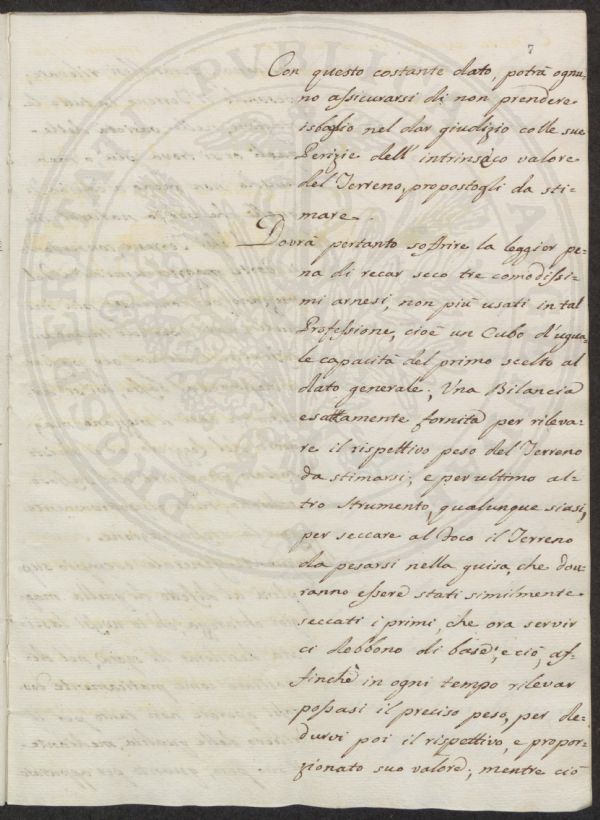 7
Con questo costante dato, potrà ognu-
no assicurarsi di non prendere
isbaglio nel dar giudizio colle sue
Perizie dell' intrinseco valore
del Terreno, propostogli da sti-
mare.
Dovrà pertanto soffrire la leggior pe-
na di recar seco tre comodissi-
mi arnesi, non più usati in tal
Professione, cioè un Cubo d'ugua-
le capacità del primo scelto al
dato generale; Una Bilancia
esattamente fornita per rileva-
re il rispettivo peso del Terreno
da stimarsi; e per ultimo al-
tro Strumento, qualunque siasi,
per seccare al Foco il Terreno
da pesarsi nella guisa, che dov-
ranno essere stati similmente
seccati i primi, che ora servir
ci debbono di base, e ciò, af-
finchè in ogni tempo rilevar
possasi il preciso peso, per de-
durvi poi il rispettivo, e propor-
zionato suo valore; mentre ciò
PROSPERITATI PUBLICAE